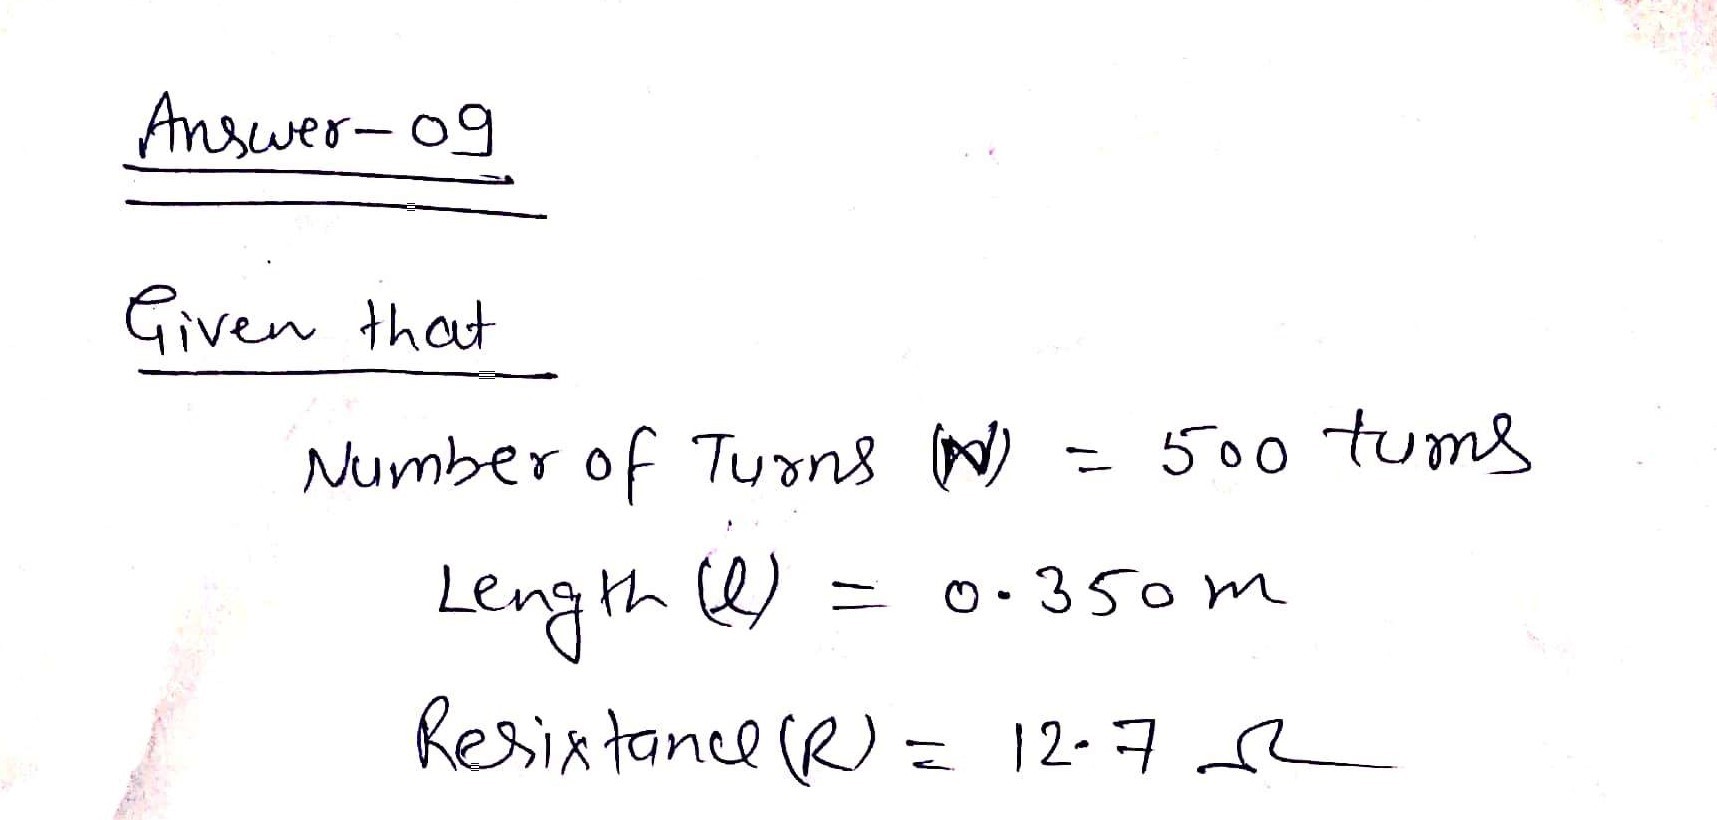 Answer-09
Given that
Number of Turns (N) = 500 turns
Length (l) = 0.350 m
Resixtance (R) = 12.7 Ω